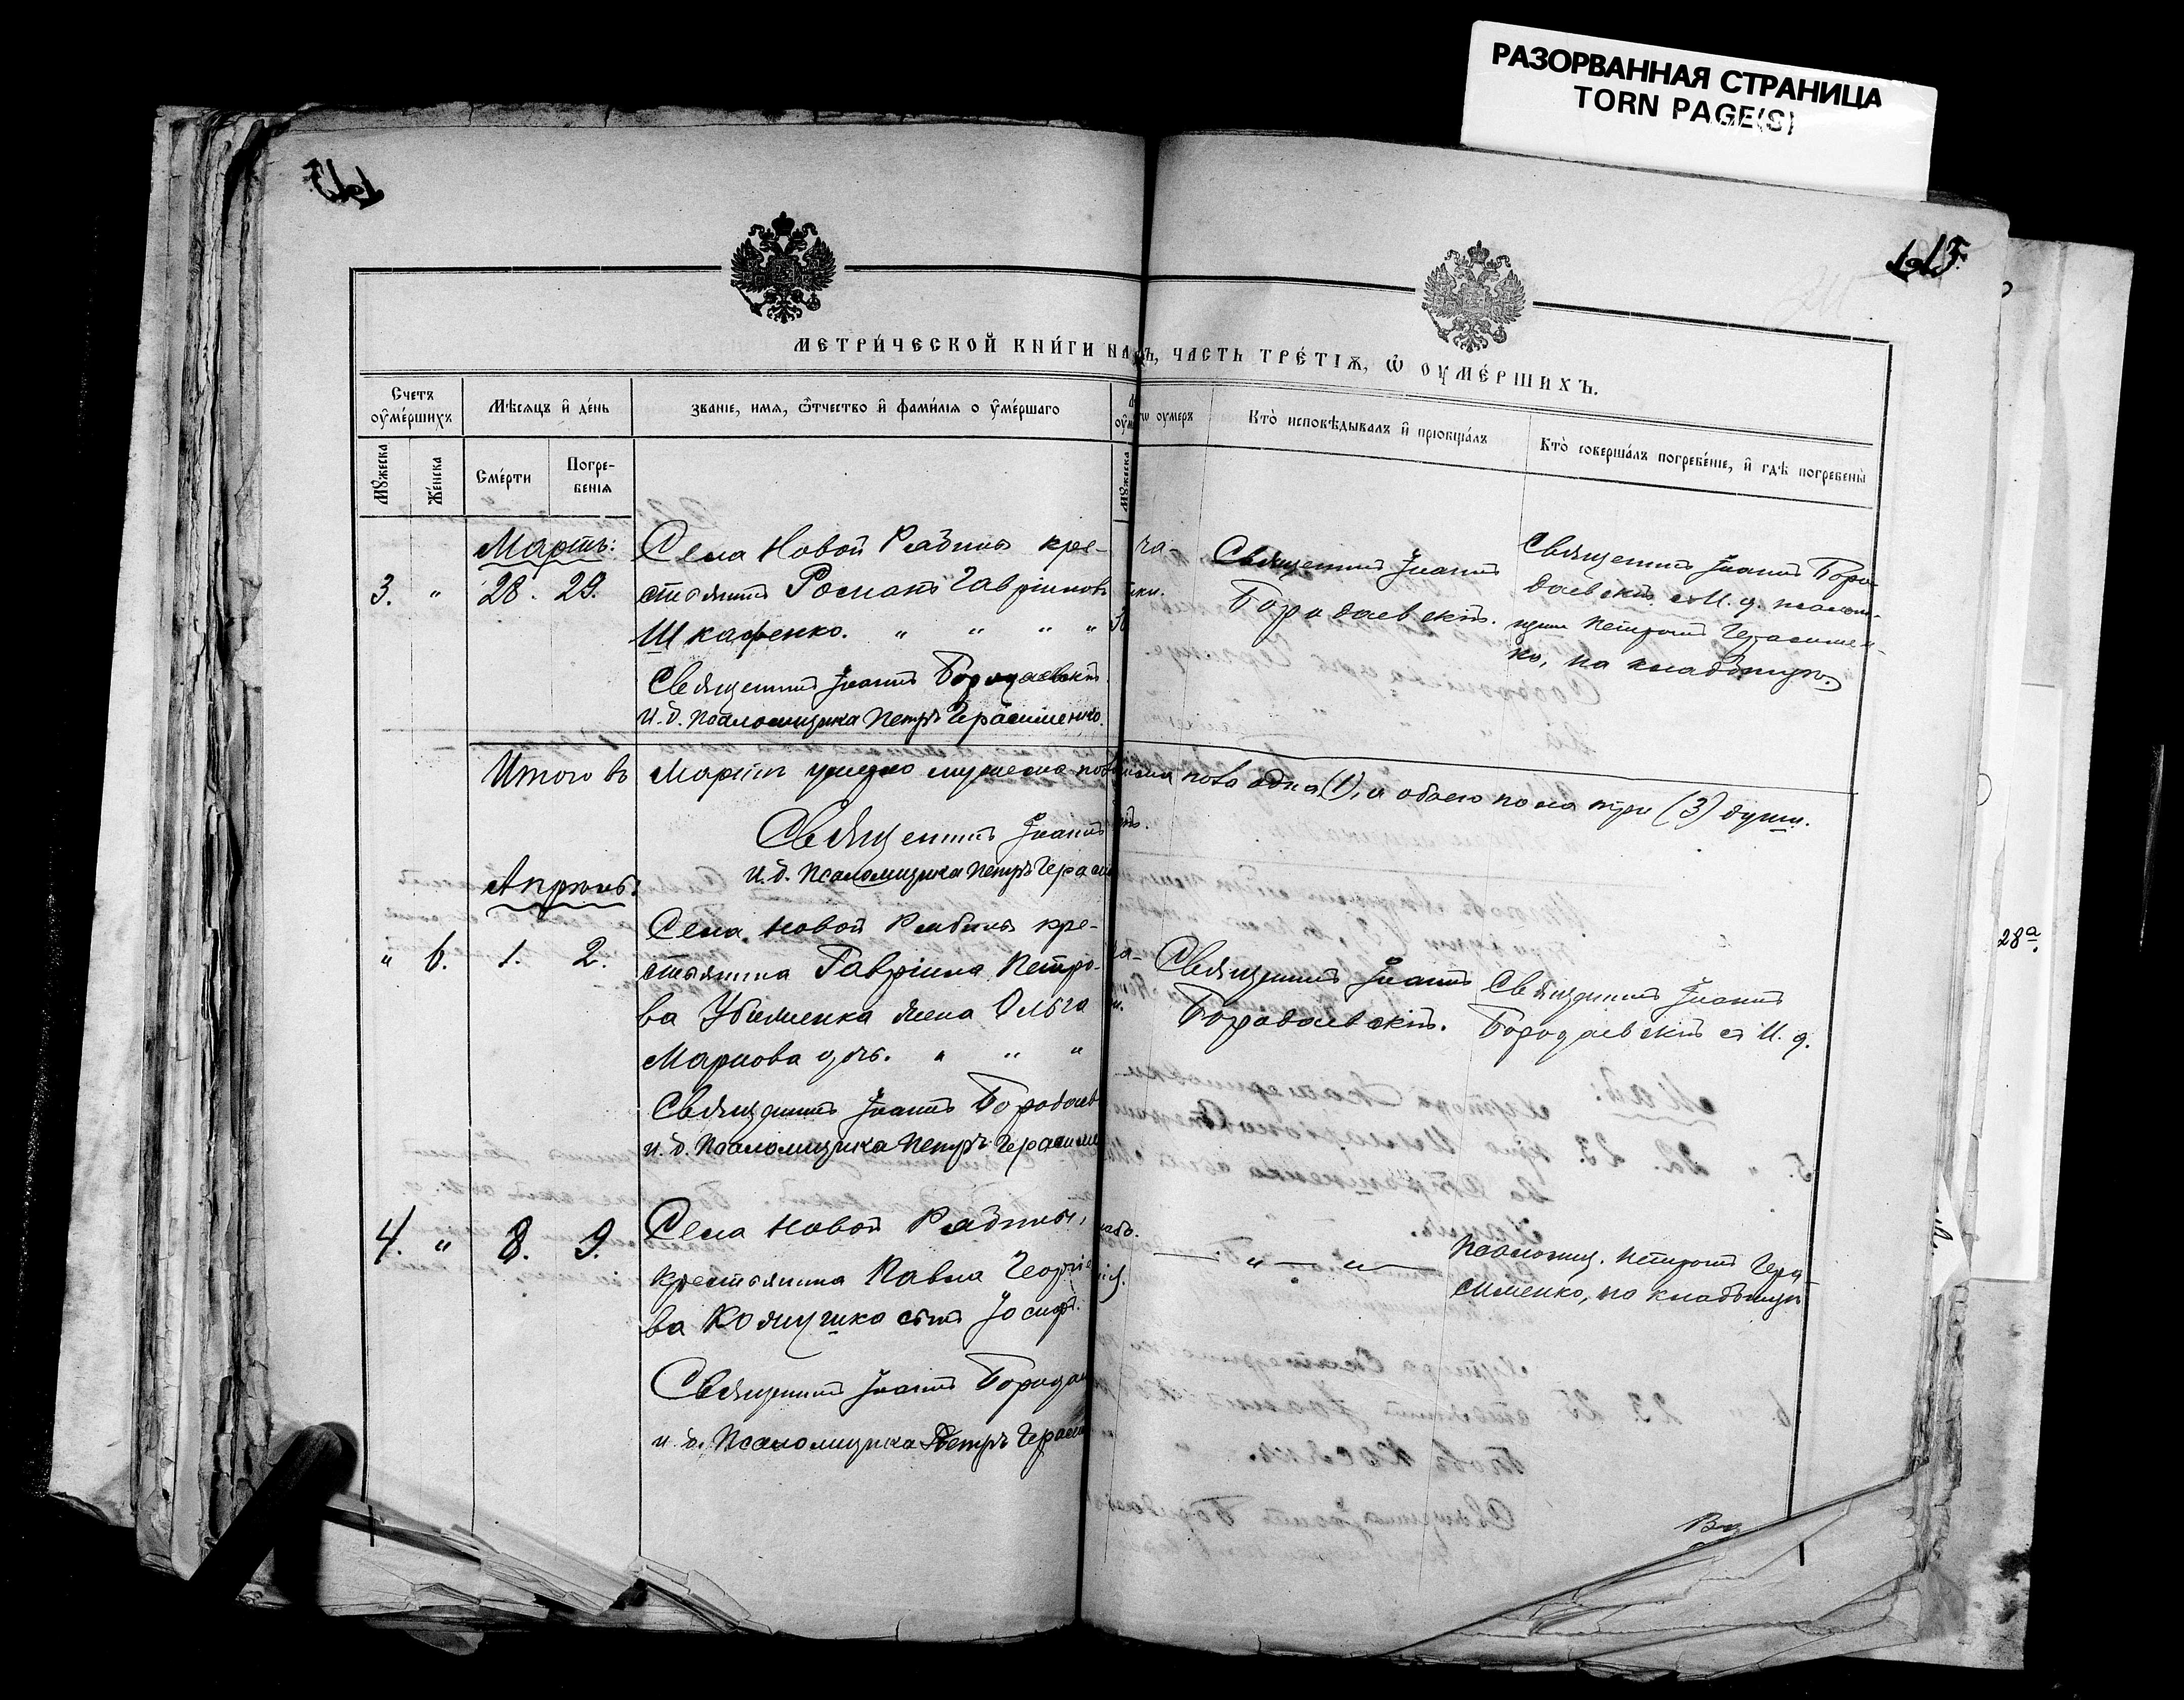 РАЗОРВАННАЯ СТРАНИЦА
TORN PAGE(S)
МЕТРИ́ЧЕСКОЙ КНИ́ГИ НА
Ъ, ЧАСТЬ ТРЕ́ТІѦ, Ѿ ОУМЕ́РШИХЪ.
Счетъ оу҆ме́ршихъ
Мѣсяцъ и҆ де́нь
званіе, имя, ѿтчество и҆ фами́лія о у҆ме́ршаго
оумеръ
Кто̀ исповѣдывалъ и҆ пріобща́лъ
Кто̀ совершалъ погребе́ніе, и҆ гдѣ̀ погребены̀
Мꙋжеска
Же́нска
Сме́рти
Погре-
бенія
Мꙋжеска
Мартъ:
3. " 28. 29.
Села Новой Рябины кре-
стьянинъ Романъ Гавріиловъ
Шкафенко. " " " "
Священникъ Іоаннъ Бородаевскій
И. д. псаломщика Петръ Герасименко.
ча-
тки.
Священникъ Іоаннъ
Бородаевскій.
Священникъ Іоаннъ Боро-
даевскій съ И. д. псалом-
щик Петромъ Герасимен-
ко, на кладбищѣ.
Итого въ Мартѣ умерло мужеска пола
пола одна (1), а обоего пола три (3) души.
Священникъ Іоаннъ
И. д. Псаломщика Петръ Гераси
Апрѣль:
" 6. 1. 2.
Села Новой Рябины кре-
стьянина Гавріила Петро-
ва Убиенка жена Ольга
Маркова дочь. " " "
Священникъ Іоаннъ Бородаев
и. д. Псаломщика Петръ Герасиме
Священникъ Іоаннъ
Бородаевскій.
Священникъ Іоаннъ
Бородаевскій съ И. д.
4. " 8. 9.
Села Новой Рябины,
крестьянина Павла Георгіе
ва сынъ Іосифъ.
Священникъ Іоаннъ Бородае
и. д. Псаломщика Петръ Гераси
— " — " —
Псаломщ. Петромъ Гера-
сименко, на кладбищѣ
28а.